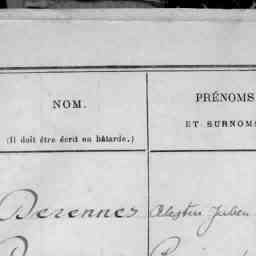 NOM.
(Il doit être écrit en bâtarde.)
PRÉNOMS
ET SURNOMS
Derennes
Celestin Julien